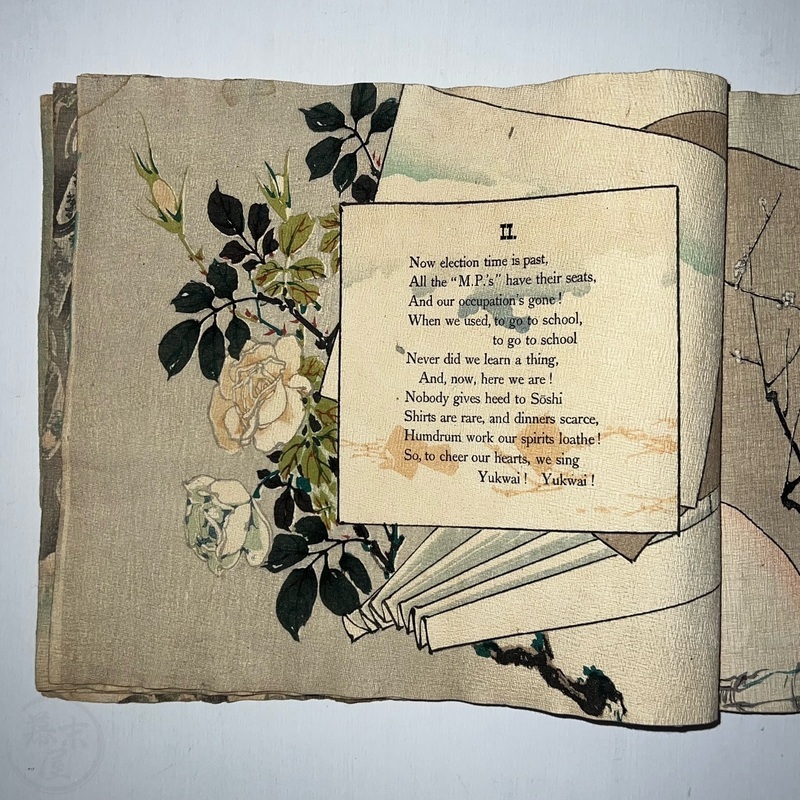 II.
Now election time is past,
All the “M.P.'s” have their seats,
And our occupation's gone!
When we used, to go to school,
to go to school
Never did we learn a thing,
And, now, here we are!
Nobody gives heed to Sōshi
Shirts are rare, and dinners scarce,
Humdrum work our spirits loathe!
So, to cheer our hearts, we sing
Yukwai! Yukwai!
幕末屋